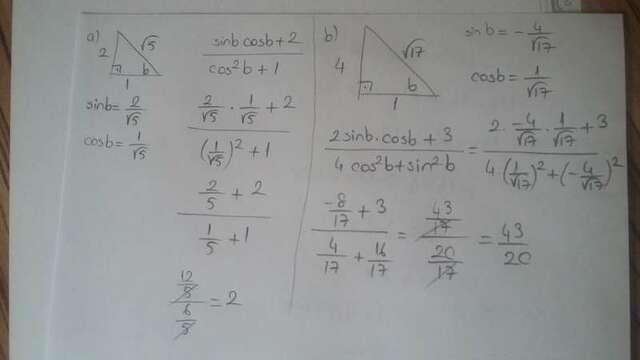 a)
2
√5
b
1
sinb = 2/√5
cosb = 1/√5
(sinb cosb + 2)/(cos²b + 1)
(2/√5 · 1/√5 + 2)/((1/√5)² + 1)
(2/5 + 2)/(1/5 + 1)
(12/5)/(6/5) = 2
b)
4
√17
b
1
sinb = -4/√17
cosb = 1/√17
(2sinb.cosb + 3)/(4cos²b + sin²b) = (2 · -4/√17 · 1/√17 + 3)/(4(1/√17)² + (-4/√17)²)
(-8/17 + 3)/(4/17 + 16/17) = (43/17)/(20/17) = 43/20